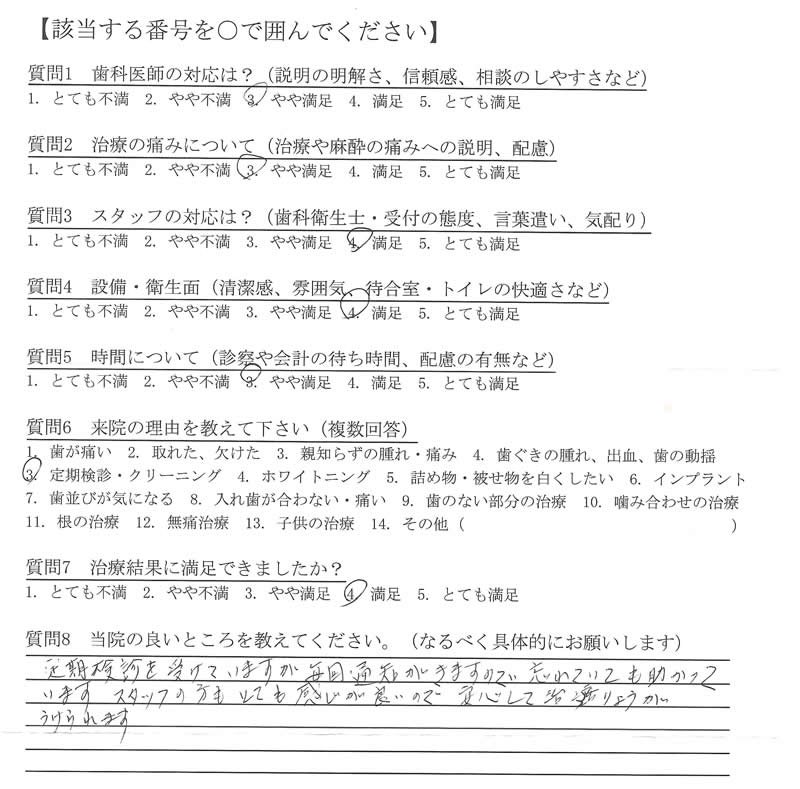 【該当する番号を○で囲んでください】
質問1 歯科医師の対応は？（説明の明解さ、信頼感、相談のしやすさなど）
1. とても不満 2. やや不満 3. やや満足 4. 満足 5. とても満足
質問2 治療の痛みについて（治療や麻酔の痛みへの説明、配慮）
1. とても不満 2. やや不満 3. やや満足 4. 満足 5. とても満足
質問3 スタッフの対応は？（歯科衛生士・受付の態度、言葉遣い、気配り）
1. とても不満 2. やや不満 3. やや満足 4. 満足 5. とても満足
質問4 設備・衛生面（清潔感、雰囲気、待合室・トイレの快適さなど）
1. とても不満 2. やや不満 3. やや満足 4. 満足 5. とても満足
質問5 時間について（診察や会計の待ち時間、配慮の有無など）
1. とても不満 2. やや不満 3. やや満足 4. 満足 5. とても満足
質問6 来院の理由を教えて下さい（複数回答）
1. 歯が痛い 2. 取れた、欠けた 3. 親知らずの腫れ・痛み 4. 歯ぐきの腫れ、出血、歯の動揺
3. 定期検診・クリーニング 4. ホワイトニング 5. 詰め物・被せ物を白くしたい 6. インプラント
7. 歯並びが気になる 8. 入れ歯が合わない・痛い 9. 歯のない部分の治療 10. 噛み合わせの治療
11. 根の治療 12. 無痛治療 13. 子供の治療 14. その他（ ）
質問7 治療結果に満足できましたか？
1. とても不満 2. やや不満 3. やや満足 4. 満足 5. とても満足
質問8 当院の良いところを教えてください。（なるべく具体的にお願いします）
定期検診を受けていますが毎回通知がきますので忘れていても助かって
います スタッフの方もとても感じが良いので 安心して治りょうが
うけられます